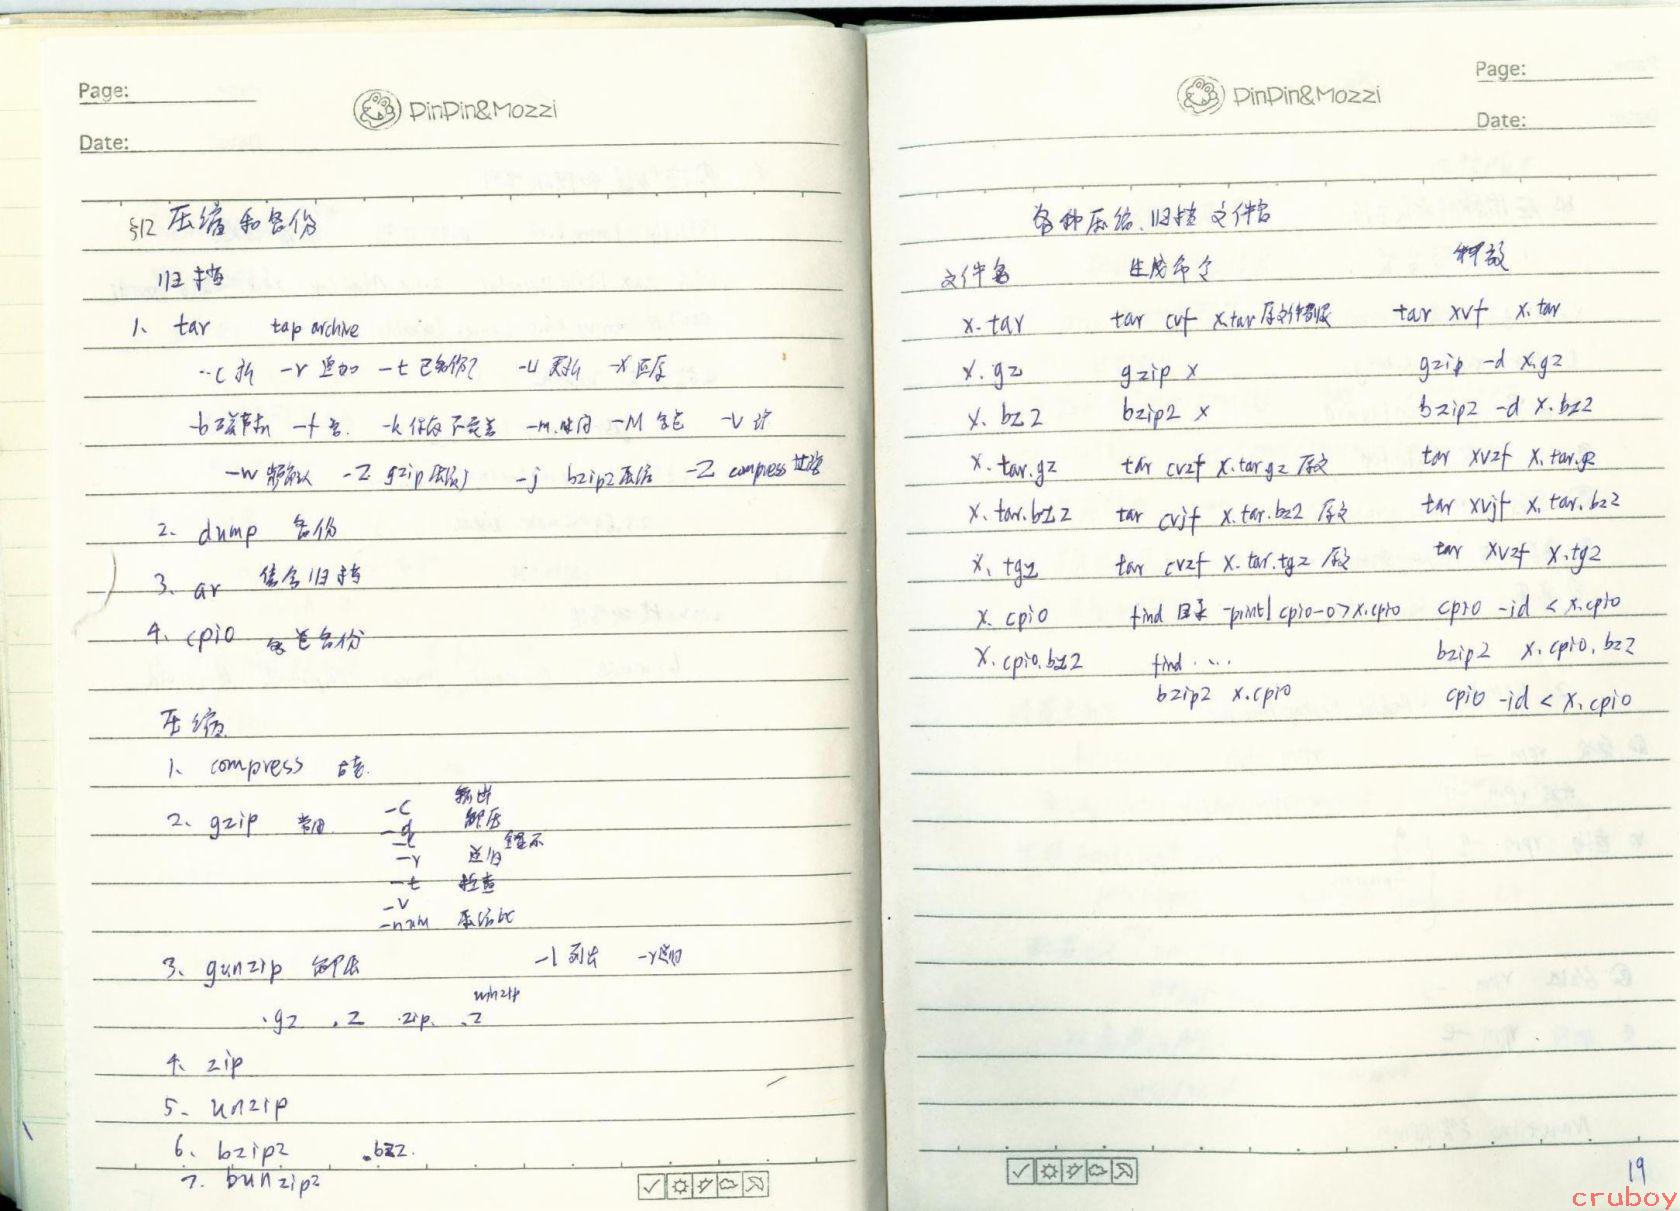 Page:
PinPin&Mozzi
Date:
§12 压缩和备份
归档
1、 tar tap archive
-c 新 -r 追加 -t 已备份? -u 更新 -x 还原
-f 名 -k 保存不覆盖 -m 时间 -M -v 详
-w 确认 -z gzip压缩 -j bzip2压缩 -Z compress
2、 dump 备份
3、 ar 集合归档
4、 cpio 备份
压缩
1、 compress 古老.
2、 gzip 常用
-c 输出
-d 解压
-l 显示
-r 递归
-t 检查
-v
-num 压缩比
3、 gunzip 解压 -l 列出 -r递归
winzip
.gz .Z .zip .z
4、 zip
5、 unzip
6、 bzip2 .bz2.
7、 bunzip2
Page:
PinPin&Mozzi
Date:
各种压缩、归档文件名
文件名 生成命令 释放
x.tar tar cvf x.tar 原文件 tar xvf x.tar
x.gz gzip x gzip -d x.gz
x.bz2 bzip2 x bzip2 -d x.bz2
x.tar.gz tar cvzf x.tar.gz 原文 tar xvzf x.tar.gz
x.tar.bz2 tar cvjf x.tar.bz2 原文 tar xvjf x.tar.bz2
x.tgz tar cvzf x.tar.tgz 原文 tar xvzf x.tgz
x.cpio find 目录 -print| cpio-o > x.cpio cpio -id < x.cpio
x.cpio.bz2 find .... bzip2 x.cpio.bz2
bzip2 x.cpio cpio -id < x.cpio
19
cruboy